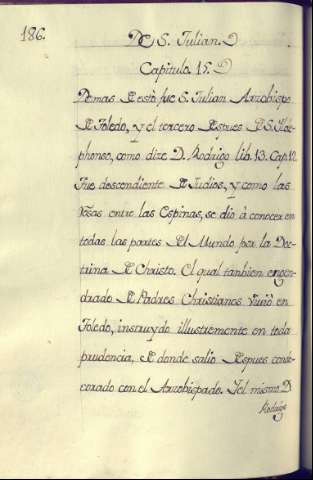 186.
De S. Julian.
Capitulo. 15.
Demas de esto fue S. Julian Arzobispo
de Toledo, y el tercero despues de S. Ilde-
phonso, como dize D. Rodrigo lib. 13. Cap. 12.
Fue descendiente de Judios, y como las
Rosas entre las Espinas, se dio à conocer en
todas las partes del Mundo por la Doc-
trina de Christo. El qual tanbien engen-
drado de Padres Christianos vivió en
Toledo, instruydo illustremente en toda
prudencia, de donde salio despues conde-
corado con el Arzobispado. Iel mismo D.
Rodrigo